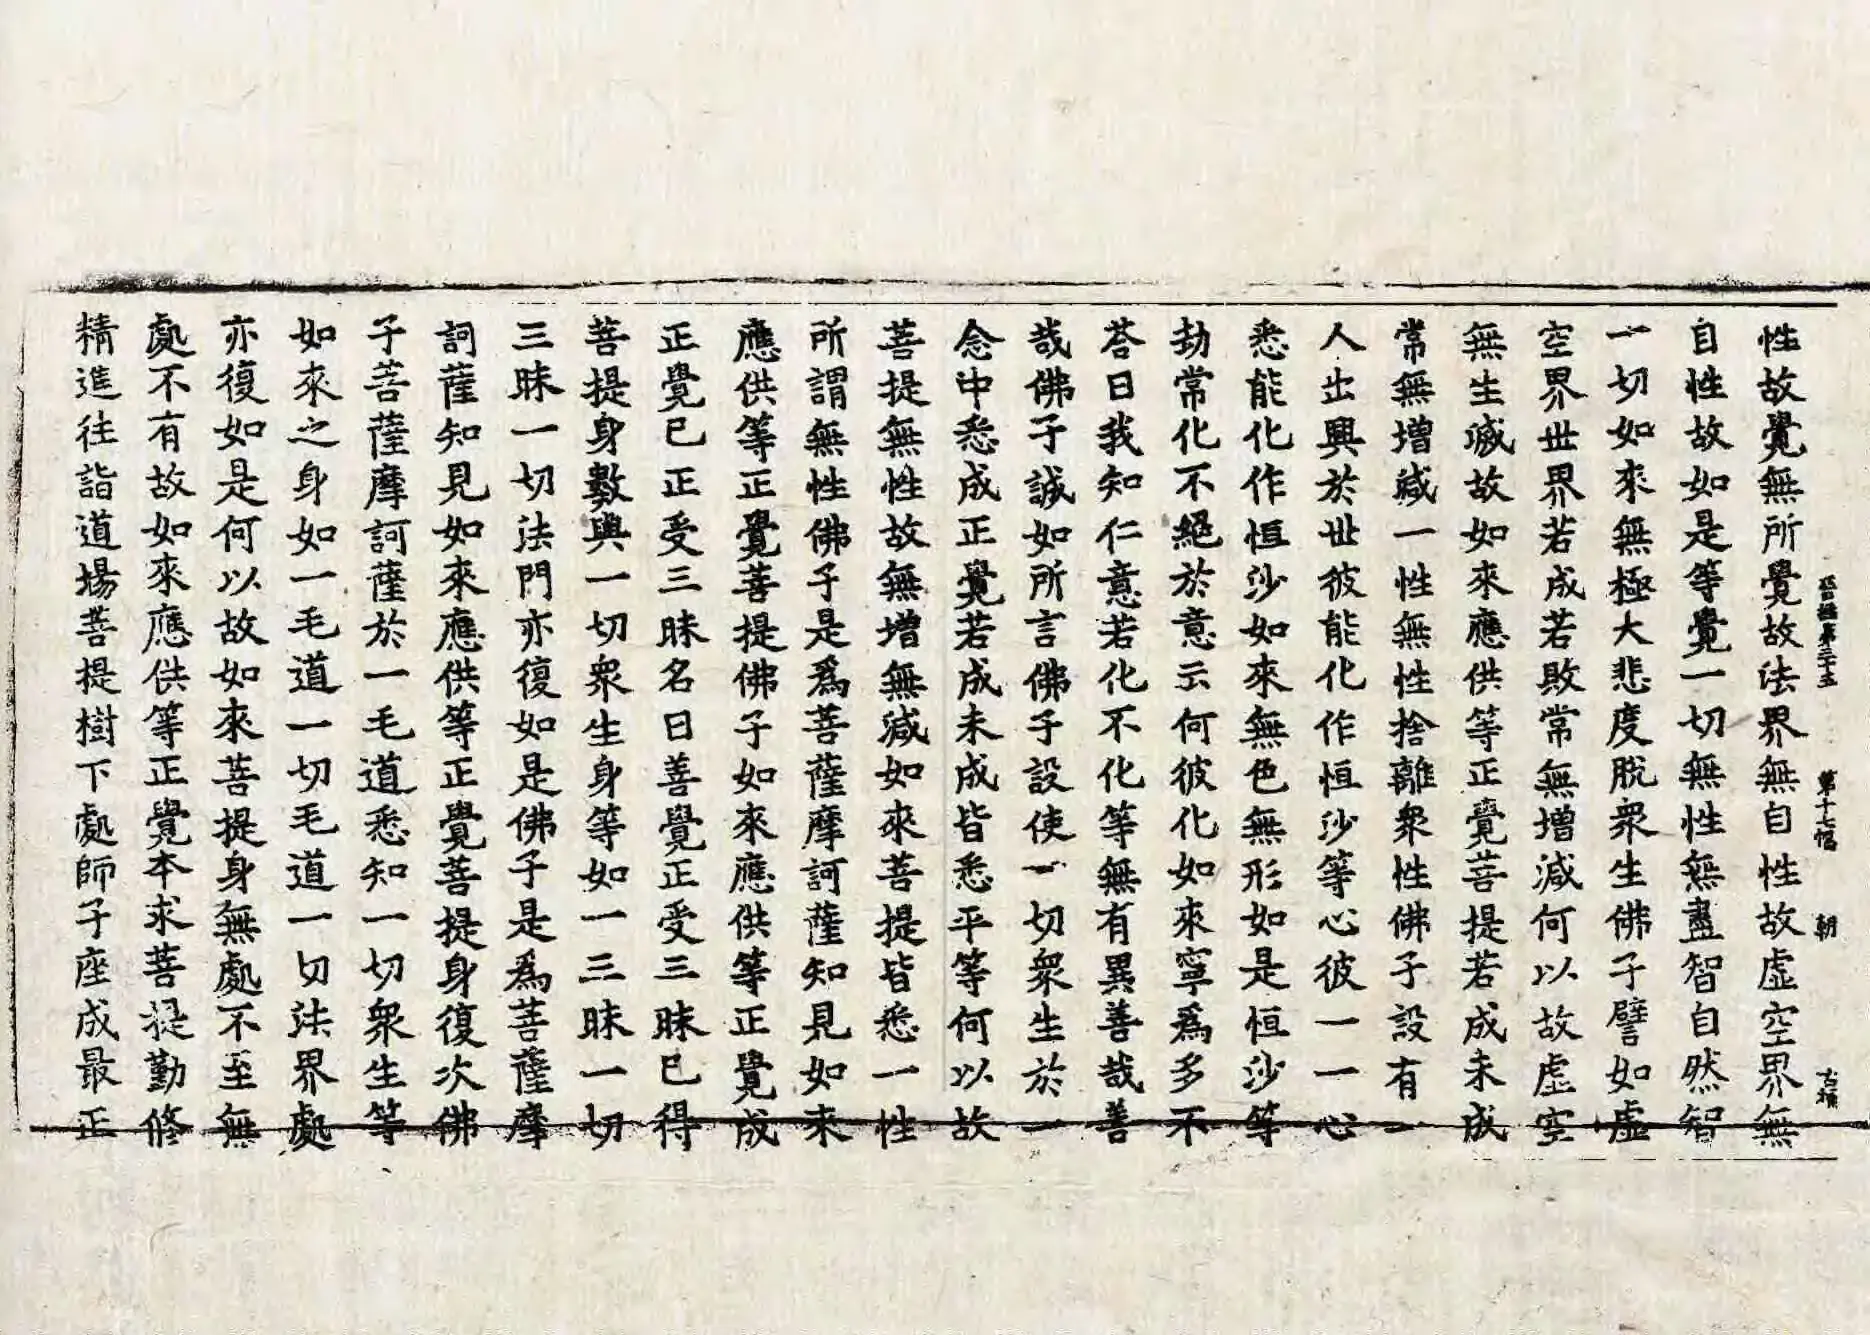 晉經第三十五 第十七幅 朝
性故覺無所覺故法界無自性故虛空界無
自性故如是等覺一切無性無盡智自然智
一切如來無極大悲度脫衆生佛子譬如虛
空界世界若成若敗常無增減何以故虛空
無生滅故如來應供等正覺菩提若成未成
常無增減一性無性捨離衆性佛子設有一
人出興於世彼能化作恒沙等心彼一一心
悉能化作恒沙如來無色無形如是恒沙等
劫常化不絕於意云何彼化如來寧爲多不
荅曰我知仁意若化不化等無有異善哉善
哉佛子誠如所言佛子設使一切衆生於一
念中悉成正覺若成未成皆悉平等何以故
菩提無性故無增無減如來菩提皆悉一性
所謂無性佛子是爲菩薩摩訶薩知見如來
應供等正覺菩提佛子如來應供等正覺成
正覺已正受三昧名曰善覺正受三昧已得
菩提身數與一切衆生身等如一三昧一切
三昧一切法門亦復如是佛子是爲菩薩摩
訶薩知見如來應供等正覺菩提身復次佛
子菩薩摩訶薩於一毛道悉知一切衆生等
如來之身如一毛道一切毛道一切法界處
亦復如是何以故如來菩提身無處不至無
處不有故如來應供等正覺本求菩提勤修
精進往詣道場菩提樹下處師子座成最正